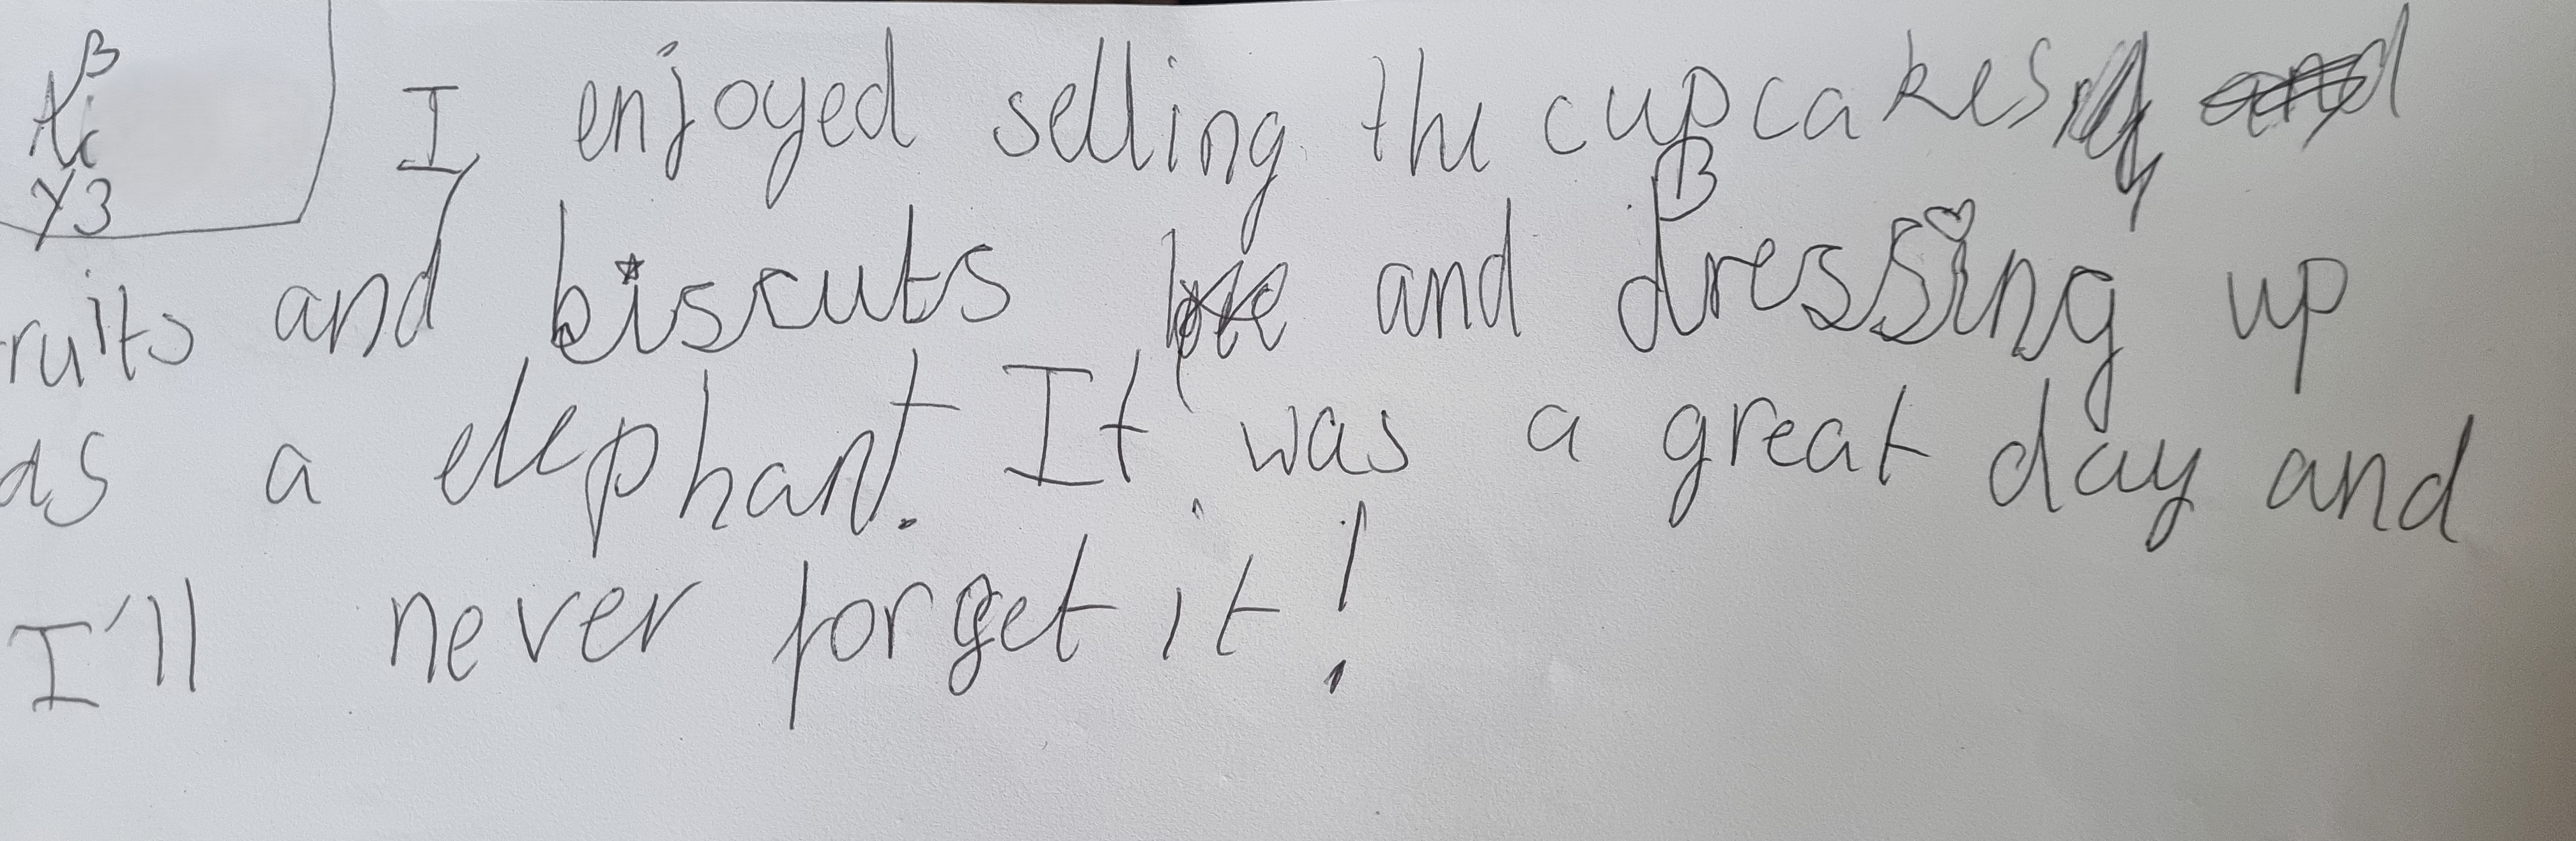 Y3
I enjoyed selling the cupcakes,
ruits and biscuts and dressing up
as a elephant. It was a great day and
I'll never forget it!